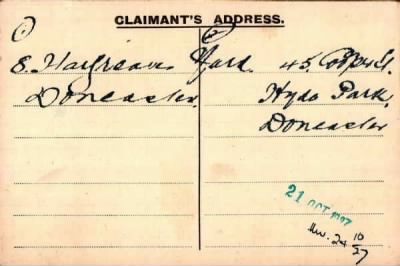 CLAIMANT'S ADDRESS.
①
8. Hargreaves Yard.
Doncaster.
②
45. Cooper St.
Hyde Park.
Doncaster
21 OCT 1927
24 10/27